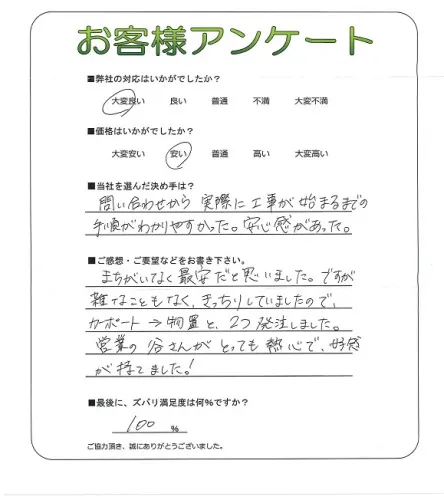 お客様アンケート
■弊社の対応はいかがでしたか？
大変良い 良い 普通 不満 大変不満
■価格はいかがでしたか？
大変安い 安い 普通 高い 大変高い
■当社を選んだ決め手は？
問い合わせから 実際に工事が始まるまでの
手順がわかりやすかった。安心感があった。
■ご感想・ご要望などをお書き下さい。
まちがいなく最安だと思いました。ですが
雑なこともなく、きっちりしていましたので、
カーポート → 物置と、2つ発注しました。
営業の谷さんがとっても熱心で、好感
が持てました！
■最後に、ズバリ満足度は何%ですか？
100 %
ご協力頂き、誠にありがとうございました。